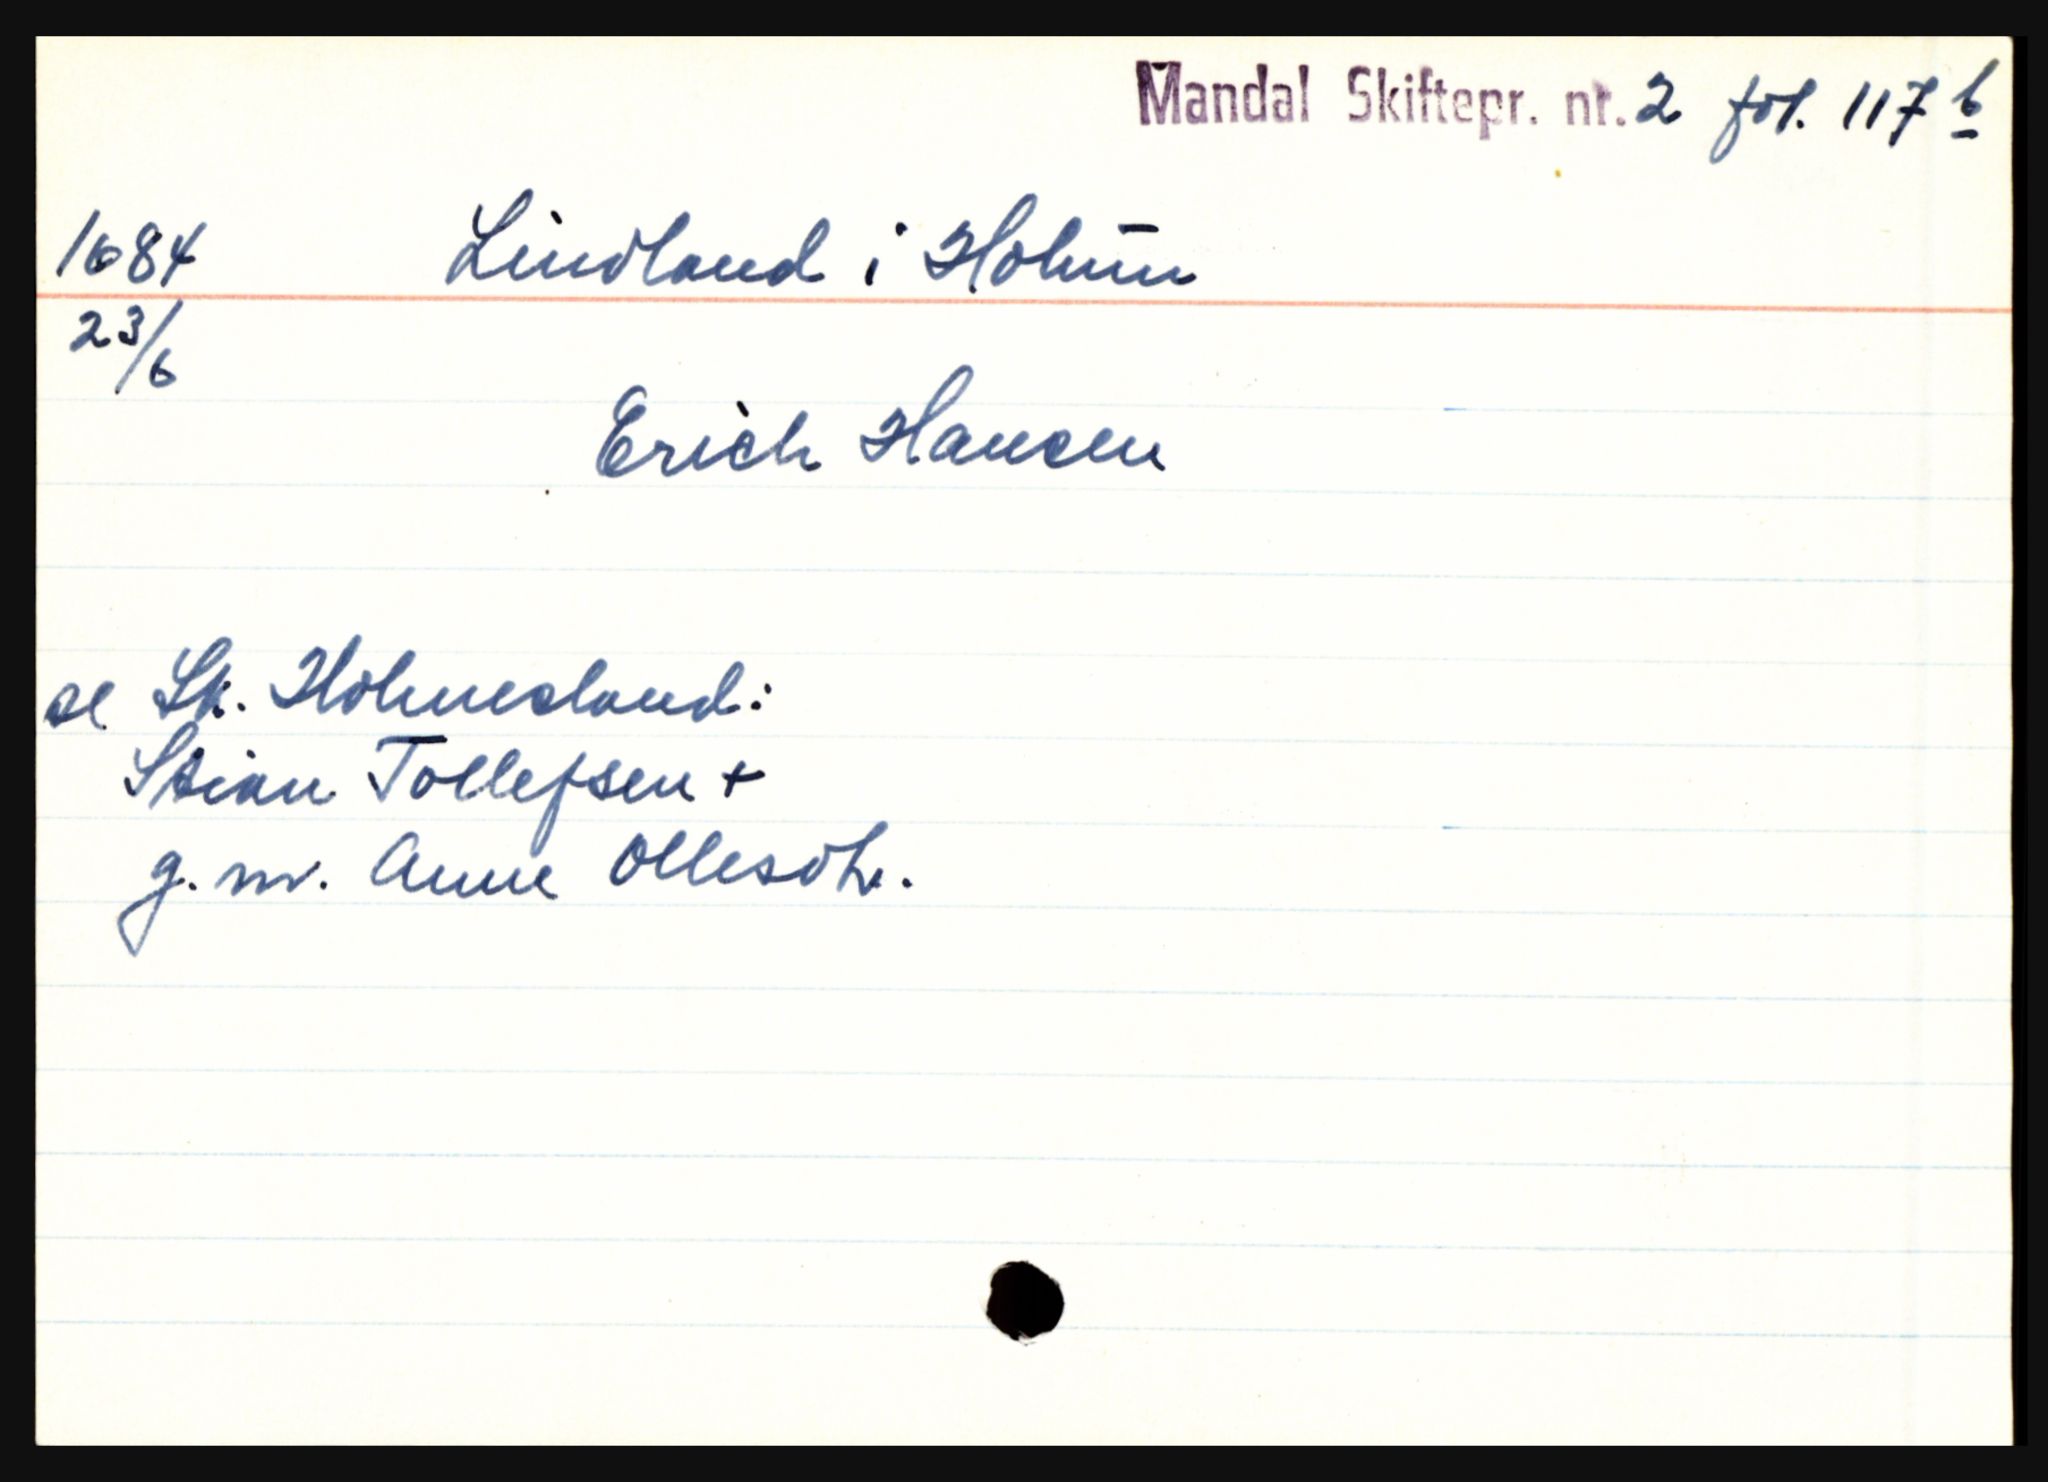 Mandal Skiftepr. nr. 2 fol. 117 b
1684 Lindland i Holum̄
23/6
Erich Hansen
se Sk. Holmesland:
Stian Tollefsen +
g. m. Anne Ollesdtr.